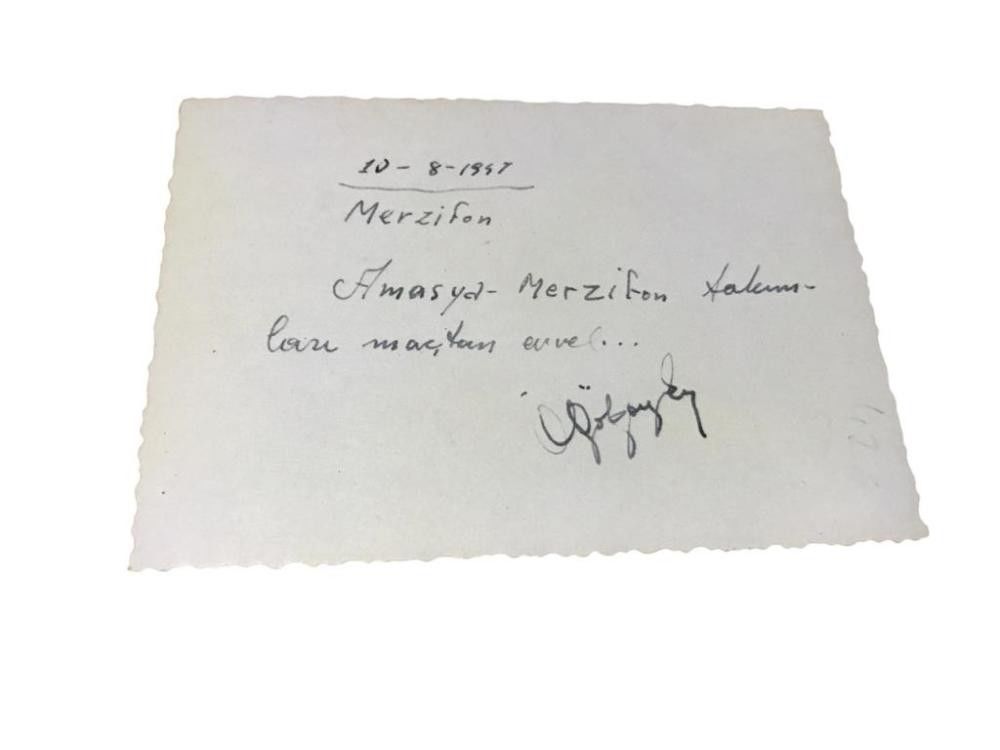 10 - 8-1947
Merzifon
Amasya- Merzifon takım-
ları maçtan evvel...